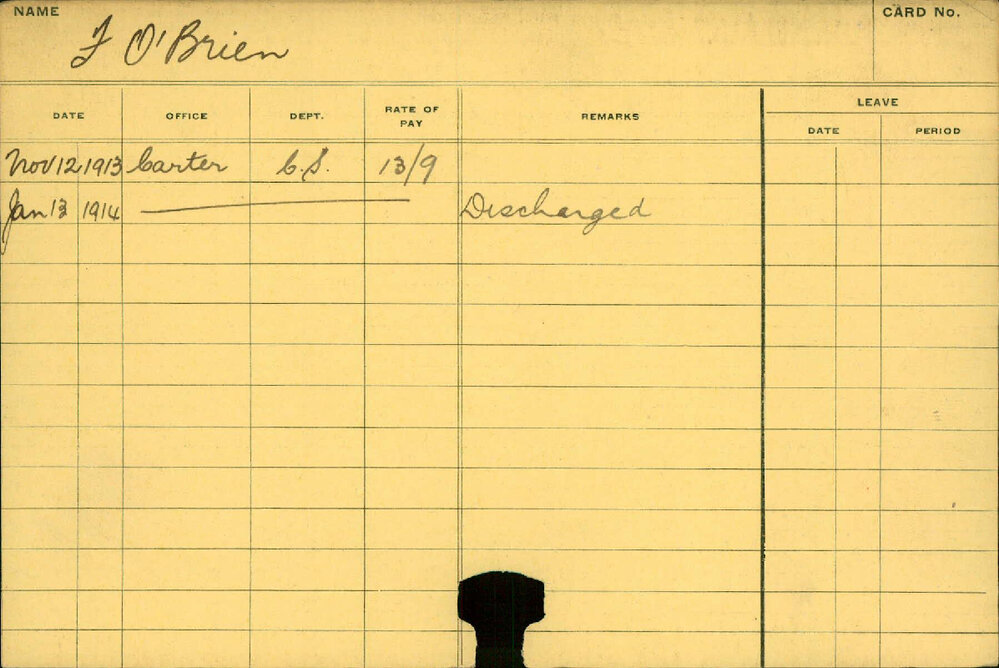 NAME
CARD No.
F O'Brien
LEAVE
DATE OFFICE DEPT. RATE OF PAY REMARKS DATE PERIOD
Nov 12 1913 Carter C.S. 13/9
Jan 13 1914 Discharged